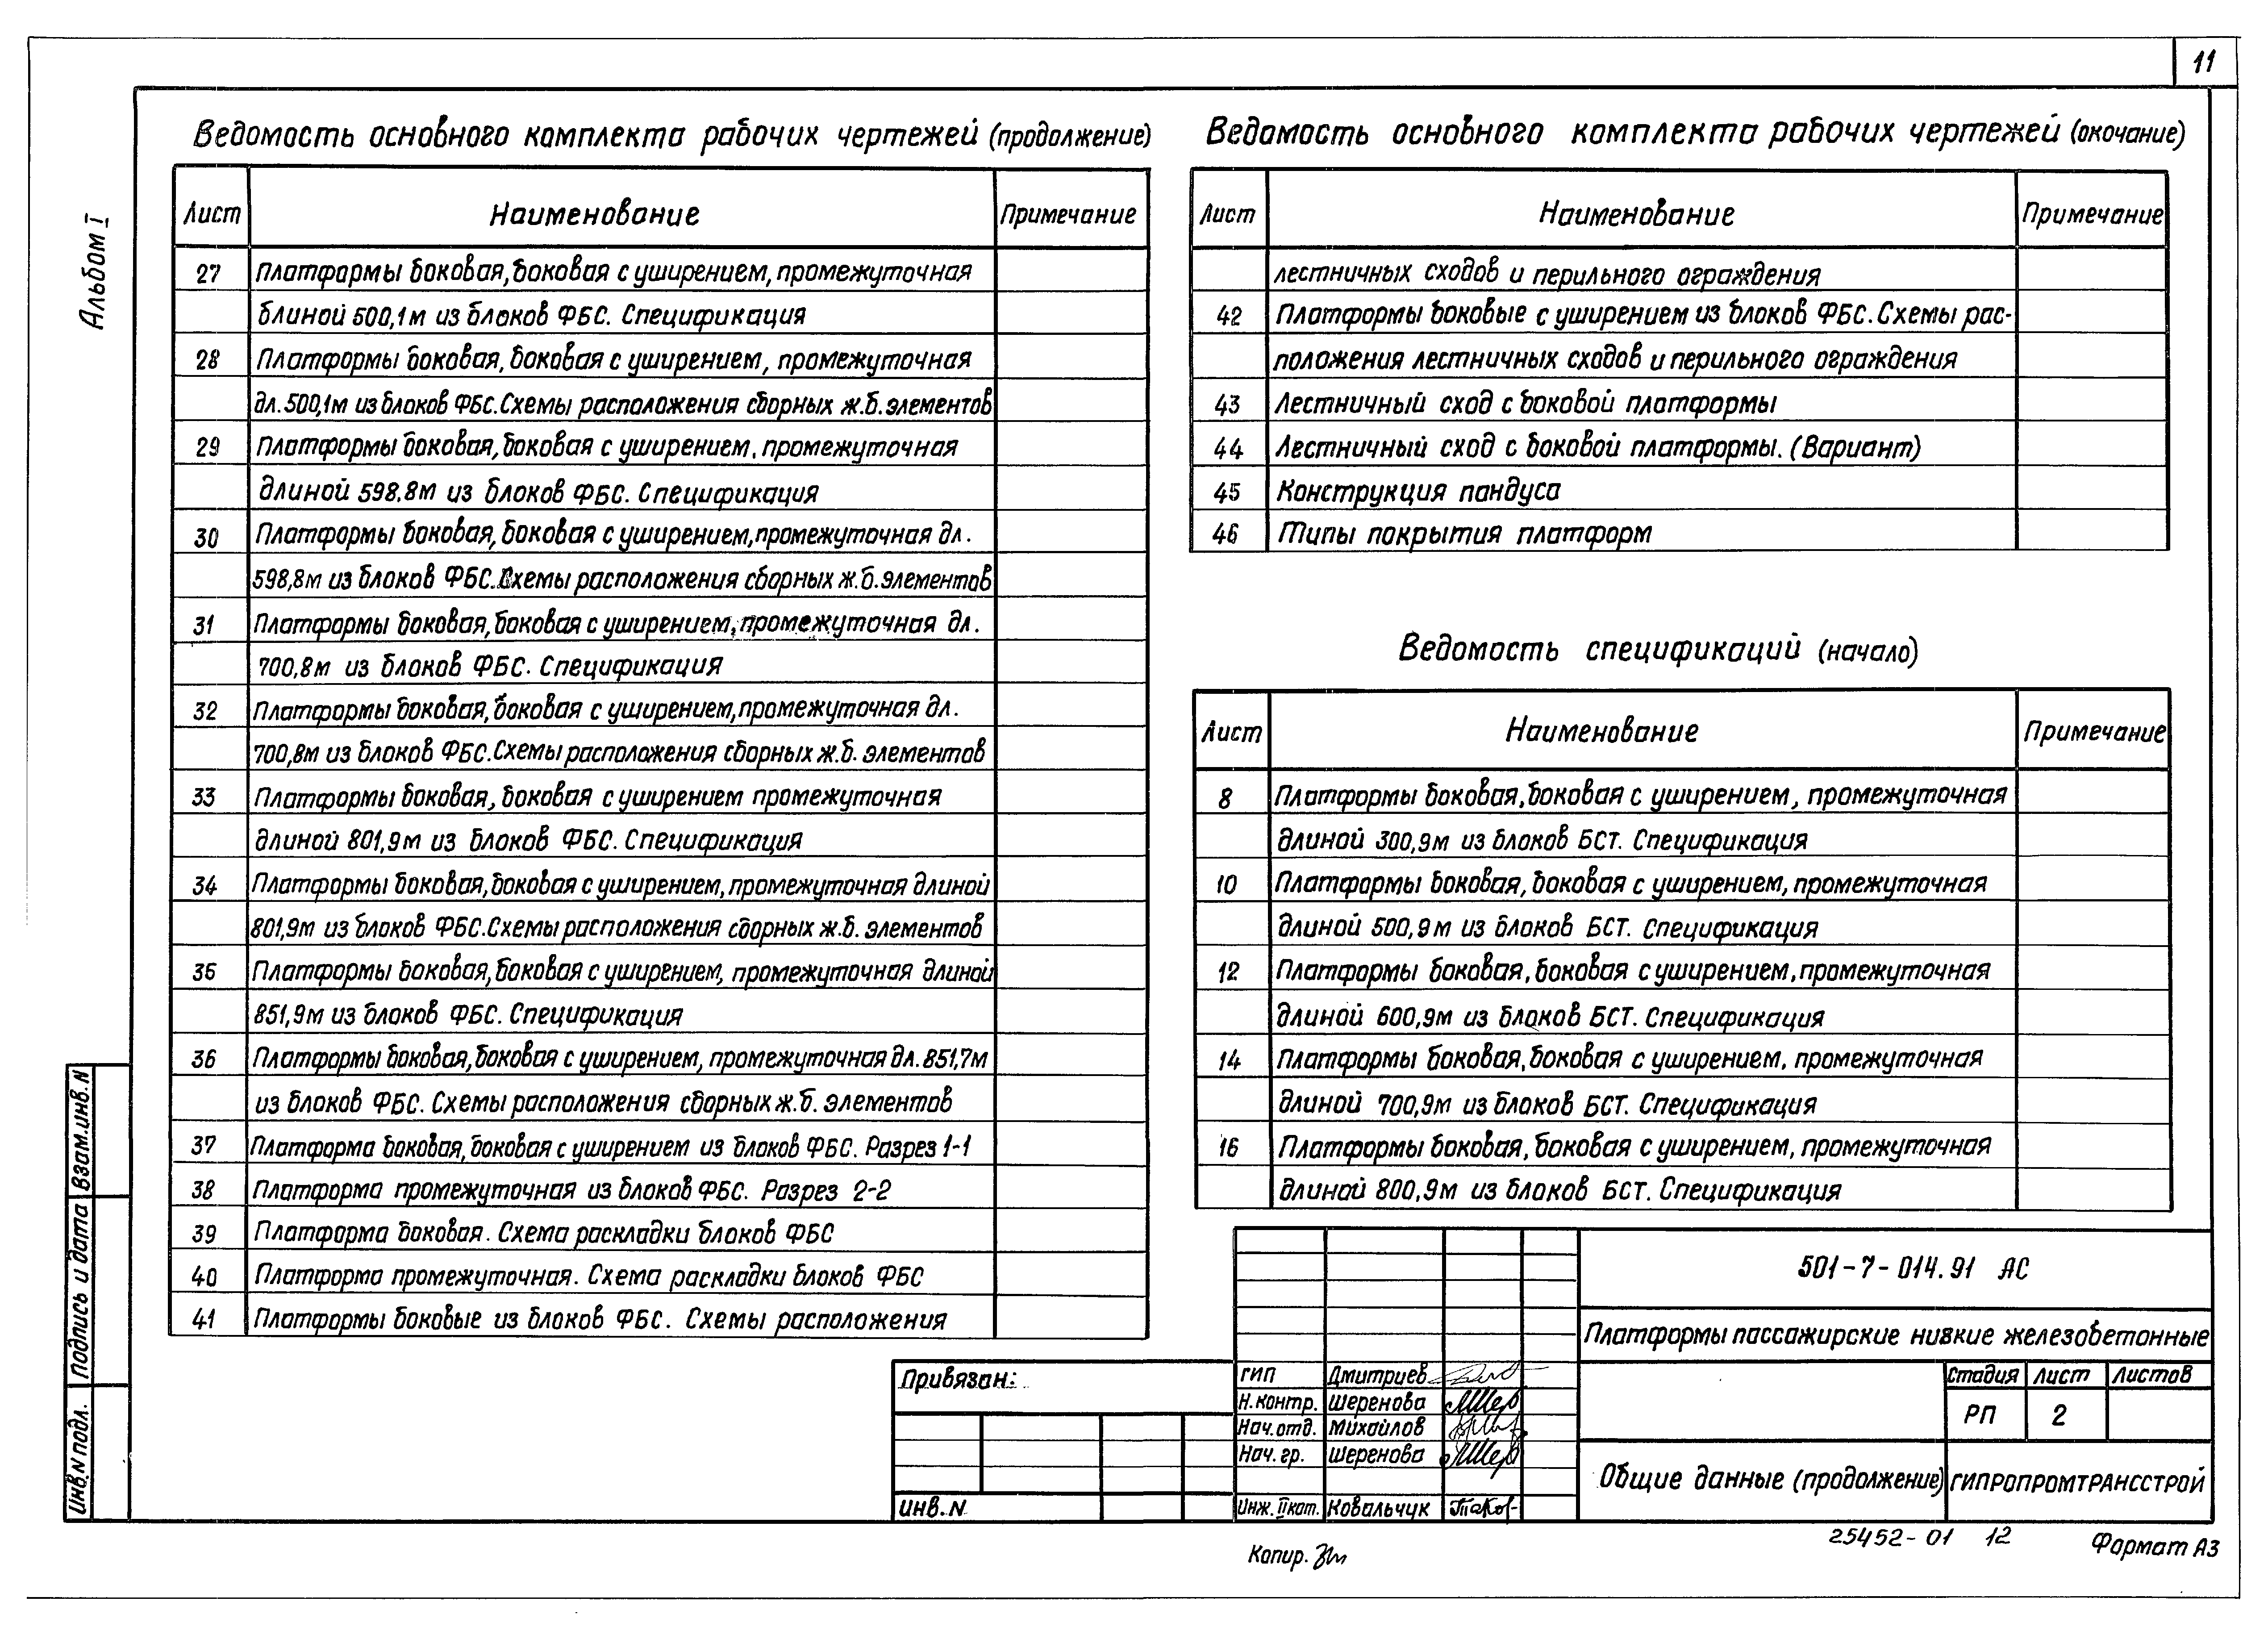 11
Альбом I
Ведомость основного комплекта рабочих чертежей (продолжение)
Лист Наименование Примечание
27 Платформы боковая, боковая с уширением, промежуточная
длиной 500,1м из блоков ФБС. Спецификация
28 Платформы боковая, боковая с уширением, промежуточная
дл. 500,1м из блоков ФБС. Схемы расположения сборных ж.б. элементов
29 Платформы боковая, боковая с уширением, промежуточная
длиной 598.8м из блоков ФБС. Спецификация
30 Платформы боковая, боковая с уширением, промежуточная дл.
598,8м из блоков ФБС. Схемы расположения сборных ж.б. элементов
31 Платформы боковая, боковая с уширением, промежуточная дл.
700,8м из блоков ФБС. Спецификация
32 Платформы боковая, боковая с уширением, промежуточная дл.
700,8м из блоков ФБС. Схемы расположения сборных ж.б. элементов
33 Платформы боковая, боковая с уширением промежуточная
длиной 801,9м из блоков ФБС. Спецификация
34 Платформы боковая, боковая с уширением, промежуточная длиной
801,9м из блоков ФБС. Схемы расположения сборных ж.б. элементов
35 Платформы боковая, боковая с уширением, промежуточная длиной
851,9м из блоков ФБС. Спецификация
36 Платформы боковая, боковая с уширением, промежуточная дл. 851,7м
из блоков ФБС. Схемы расположения сборных ж.б. элементов
37 Платформа боковая, боковая с уширением из блоков ФБС. Разрез 1-1
38 Платформа промежуточная из блоков ФБС. Разрез 2-2
39 Платформа боковая. Схема раскладки блоков ФБС
40 Платформа промежуточная. Схема раскладки блоков ФБС
41 Платформы боковые из блоков ФБС. Схемы расположения
Ведомость основного комплекта рабочих чертежей (окочание)
Лист Наименование Примечание
лестничных сходов и перильного ограждения
42 Платформы боковые с уширением из блоков ФБС. Схемы рас-
положения лестничных сходов и перильного ограждения
43 Лестничный сход с боковой платформы
44 Лестничный сход с боковой платформы. (Вариант)
45 Конструкция пандуса
46 Типы покрытия платформ
Ведомость спецификаций (начало)
Лист Наименование Примечание
8 Платформы боковая, боковая с уширением, промежуточная
длиной 300,9м из блоков БСТ. Спецификация
10 Платформы боковая, боковая с уширением, промежуточная
длиной 500,9м из блоков БСТ. Спецификация
12 Платформы боковая, боковая с уширением, промежуточная
длиной 600,9м из блоков БСТ. Спецификация
14 Платформы боковая, боковая с уширением, промежуточная
длиной 700,9м из блоков БСТ. Спецификация
16 Платформы боковая, боковая с уширением, промежуточная
длиной 800,9м из блоков БСТ. Спецификация
501-7-014.91 АС
Платформы пассажирские низкие железобетонные
Стадия Лист Листов
РП 2
Общие данные (продолжение) ГИПРОПРОМТРАНССТРОЙ
ГИП Дмитриев
Н.контр. Шеренова
Нач.отд. Михайлов
Нач. гр. Шеренова
Инж. II кат. Ковальчук
Привязан:
Инв. N
Взам.инв. N
Подпись и дата
Инв.N подл.
Копир.
25452-01 12
Формат А3